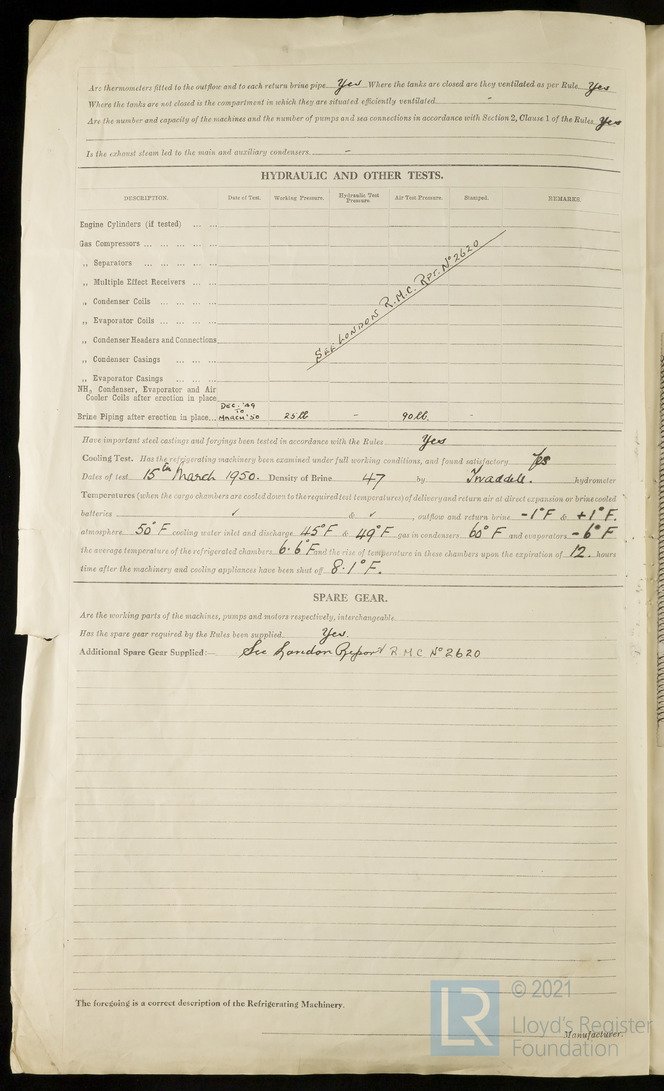 Are thermometers fitted to the outflow and to each return brine pipe Yes Where the tanks are closed are they ventilated as per Rule Yes
Where the tanks are not closed is the compartment in which they are situated efficiently ventilated -
Are the number and capacity of the machines and the number of pumps and sea connections in accordance with Section 2, Clause 1 of the Rules. Yes
Is the exhaust steam led to the main and auxiliary condensers. -
HYDRAULIC AND OTHER TESTS.
DESCRIPTION. Date of Test. Working Pressure. Hydraulic Test Pressure. Air Test Pressure. Stamped. REMARKS.
Engine Cylinders (if tested) ... ...
Gas Compressors ... ... ... ...
„ Separators ... ... ... ...
„ Multiple Effect Receivers ... ...
„ Condenser Coils ... ... ...
„ Evaporator Coils ... ... ...
„ Condenser Headers and Connections
„ Condenser Casings ... ...
„ Evaporator Casings ... ...
SEE LONDON R.M.C. RPT. No 2620
NH3 Condenser, Evaporator and Air
Cooler Coils after erection in place
Brine Piping after erection in place... DEC. '49 TO MARCH '50 25 lb - 90 lb. -
Have important steel castings and forgings been tested in accordance with the Rules Yes
Cooling Test. Has the refrigerating machinery been examined under full working conditions, and found satisfactory Yes
Dates of test 15th March 1950. Density of Brine 47 by Twaddell. hydrometer
Temperatures (when the cargo chambers are cooled down to the required test temperatures) of delivery and return air at direct expansion or brine cooled
batteries ✓ & ✓ , outflow and return brine -1°F & +1°F.
atmosphere 50°F cooling water inlet and discharge 45°F & 49°F gas in condensers 60°F and evaporators -6°F
the average temperature of the refrigerated chambers 6.6°F and the rise of temperature in these chambers upon the expiration of 12. hours
time after the machinery and cooling appliances have been shut off 8.1°F.
SPARE GEAR.
Are the working parts of the machines, pumps and motors respectively, interchangeable
Has the spare gear required by the Rules been supplied. Yes.
Additional Spare Gear Supplied:— See London Report R M C No 2620
The foregoing is a correct description of the Refrigerating Machinery.
Manufacturer.
LR © 2021
Lloyd's Register
Foundation